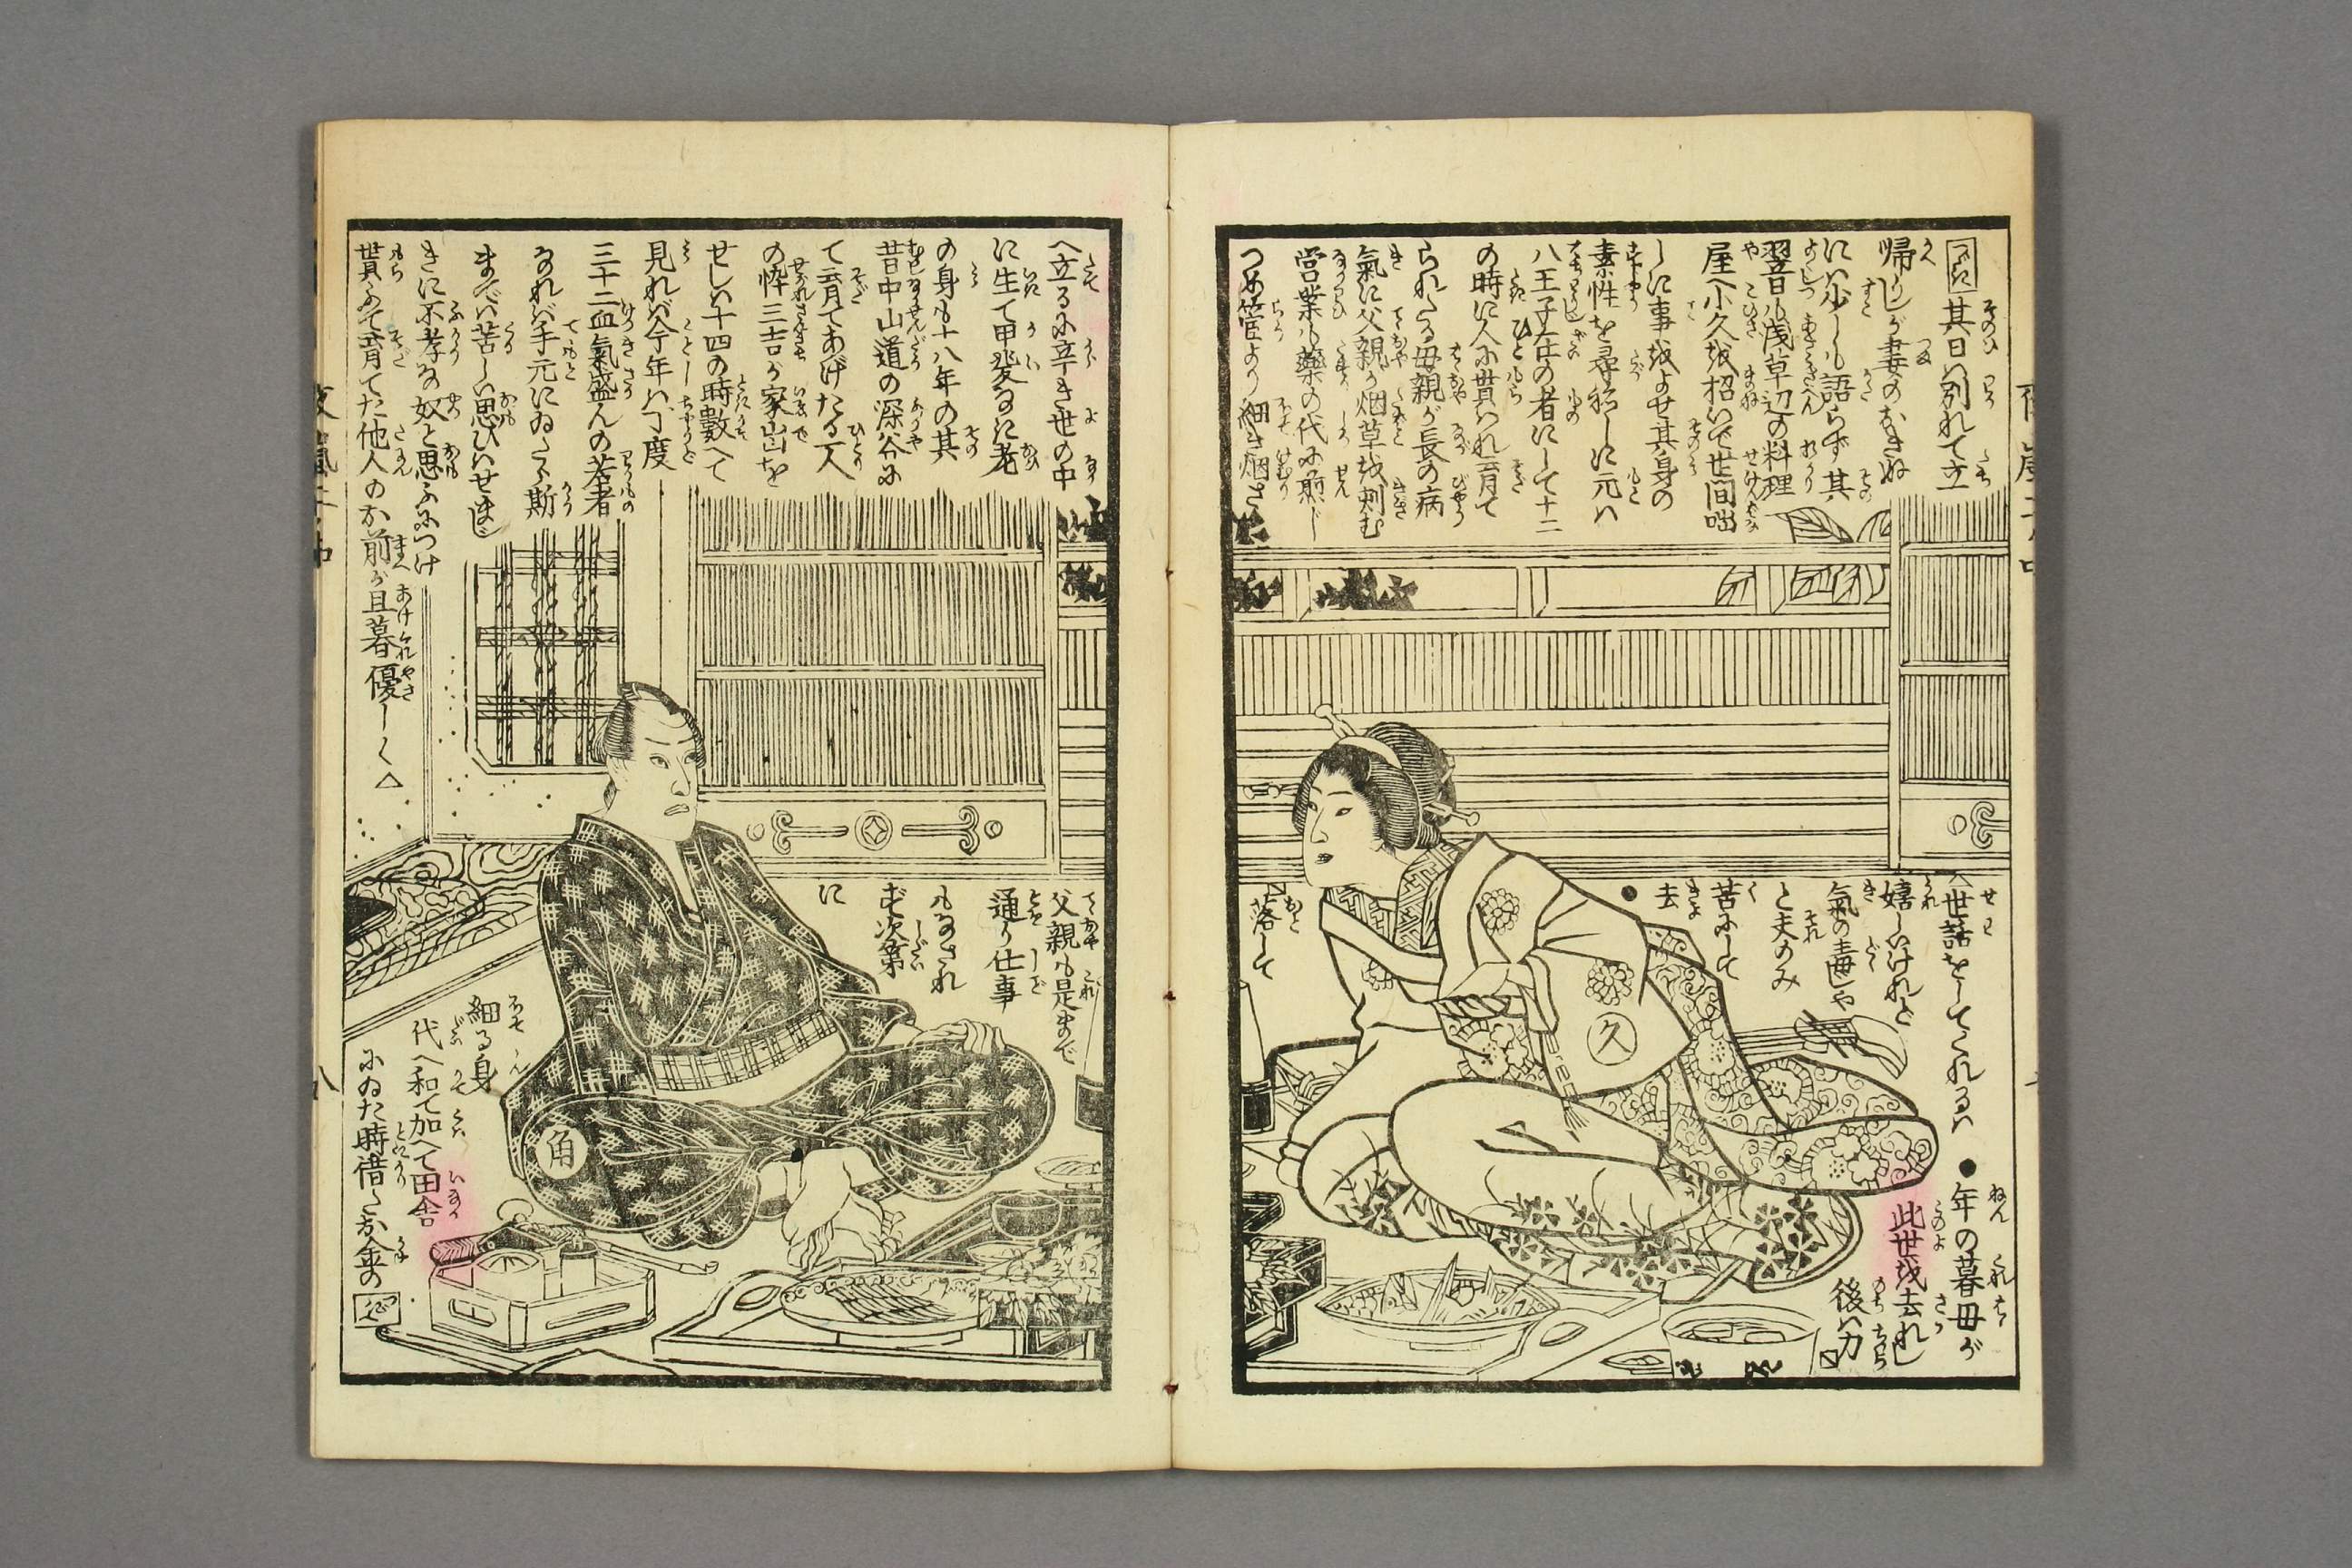 つぎに
其日ハ別れて立
帰りしが妻のおきぬ
にハ少しも語らず其
翌日も浅草辺の料理
屋へ小久を招いで世間咄
しに事をよせ其身の
素性を尋ねしに元ハ
八王子在の者にして十二
の時に人に貰ハれ育て
られたる母親が長の病
氣に父親が烟草を刺む
営業も藥の代に煎じ
つめ管より細き烟さ
へ立るに辛き世の中
に生て甲斐なに老
の身も十八年の其
昔日中山道の深谷に
て育てあげたる一人
の悴三吉が家出を
せしハ十四の時數へて
見れバ今年ハ丁度
三十二血氣盛んの若者
なれバ手元にゐたら斯
までハ苦しい思ひハせまじ
きに不孝な奴と思ふにつけ
貰ふて育てた他人のお前が旦暮優しく△
△世話をしてくれるハ
嬉しいけれど
氣の毒じや
と夫のみ
苦にして
去●
●年の暮母が
此世を去れし
後ハ力
落して
父親も是まで
通り仕事
もなされ
ず次第
に
細る身
代へ和て加へて田舎
にゐた時借たお金の
つぎへ
久
角